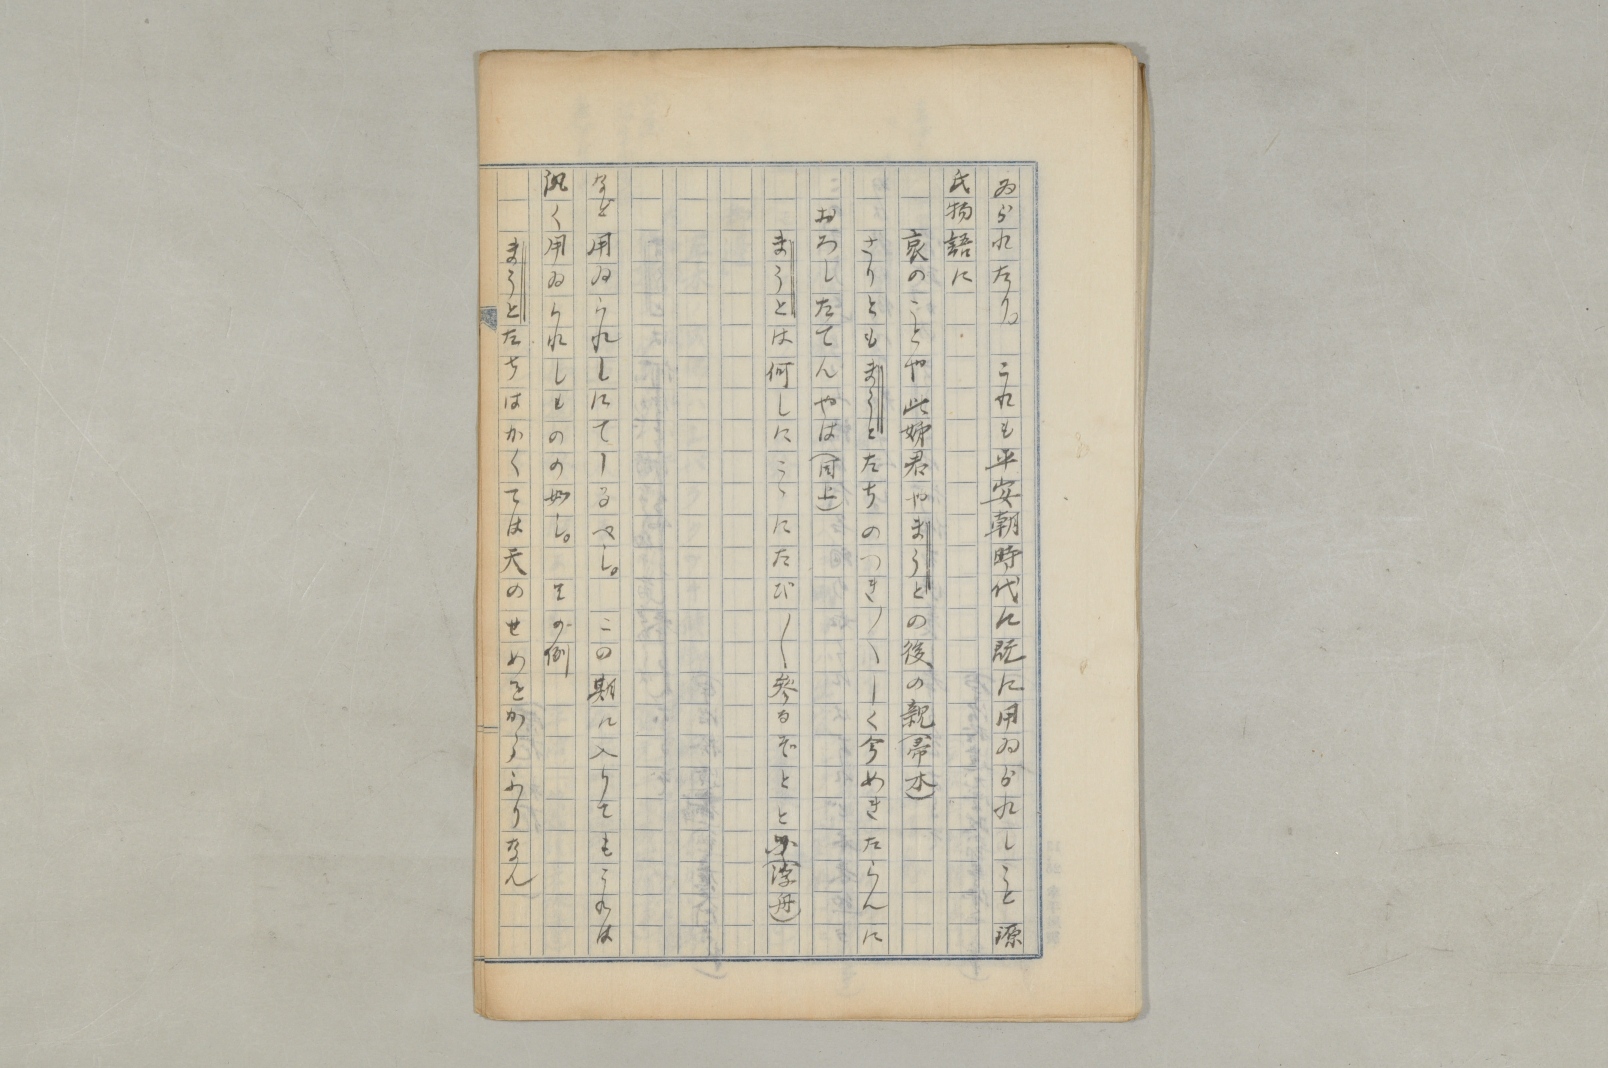 ゐられたり。これも平安朝時代に既に用ゐられしこと源
氏物語に
哀のことや此姉君やまうとの後の親(帚木)
さりともまうとたちのつき〴〵しく今めきたらんに
おろしたてんやは(同上)
まうとは何しにこゝにたび〳〵参るぞとと(浮舟)
など用ゐられしにてしるべし。この期に入りてもこれは
汎く用ゐられしものの如し。その例
まうとたちはかくては天のせめをかうふりなん